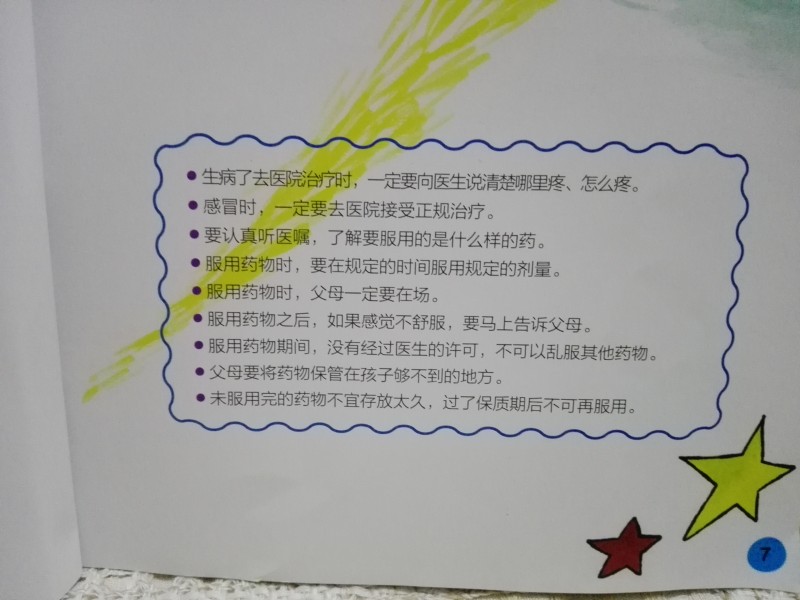 ●生病了去医院治疗时，一定要向医生说清楚哪里疼、怎么疼。
●感冒时，一定要去医院接受正规治疗。
●要认真听医嘱，了解要服用的是什么样的药。
●服用药物时，要在规定的时间服用规定的剂量。
●服用药物时，父母一定要在场。
●服用药物之后，如果感觉不舒服，要马上告诉父母。
●服用药物期间，没有经过医生的许可，不可以乱服其他药物。
●父母要将药物保管在孩子够不到的地方。
●未服用完的药物不宜存放太久，过了保质期后不可再服用。
7